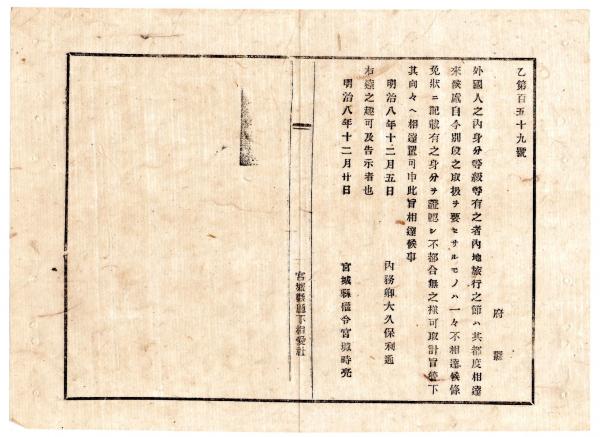 乙第百五十九號
府縣
外國人之內身分等級等有之者內地旅行之節ハ其都度相達
來候處自今別段之取扱ヲ要セサルモノハ一々不相達候條
免狀ニ記載有之身分ヲ證認シ不都合無之樣可取計旨管下
其向々ヘ相達置可申此旨相達候事
明治八年十二月五日
內務卿大久保利通
右達之趣可及告示者也
明治八年十二月廿日
宮城縣權令宮城時亮
宮城縣廳下相愛社